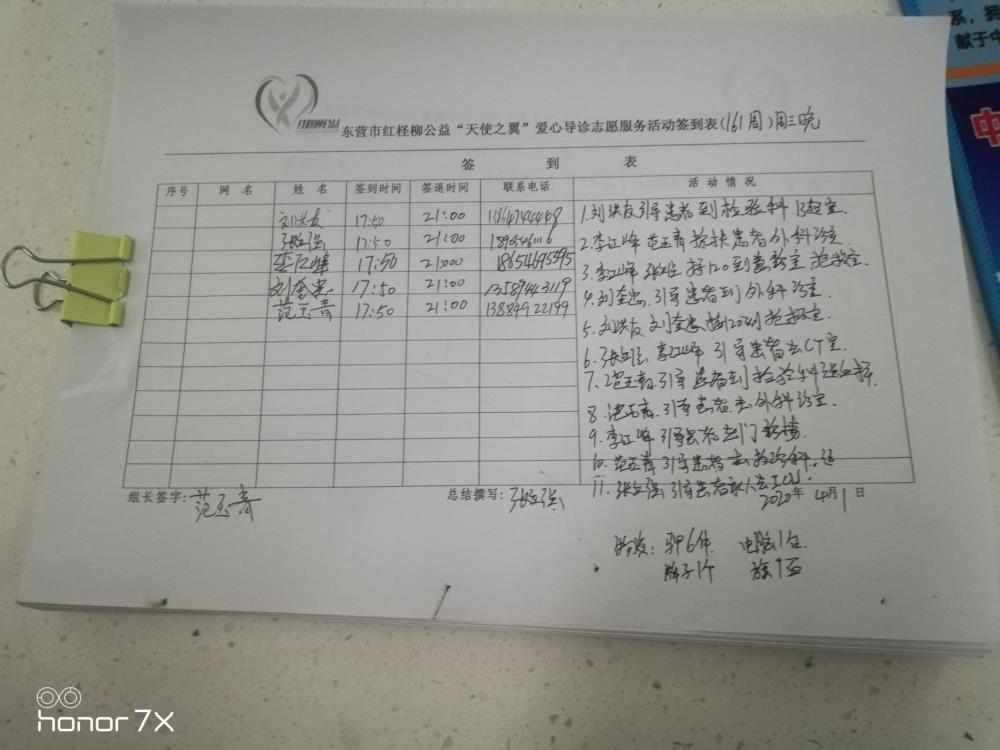 系，拥
献于中
中
东营市红柽柳公益“天使之翼”爱心导诊志愿服务活动签到表(161周)周三晚
签 到 表
序号 网 名 姓 名 签到时间 签退时间 联系电话 活 动 情 况
17:50 21:00
张红强 17:50 21:00
李江峰 17:50 21:00 18654695595
刘奎忠 17:50 21:00 13589443119
范玉青 17:50 21:00 13884922199
1.刘洪友引导患者到检验科
2.李江峰 范玉青 搀扶患者外科诊室.
3.李江峰 张红强 接120到 抢救室.
4.刘奎忠.引导患者到外科诊室.
5.刘洪友 刘奎忠.接120到抢救室.
6.张红强 李江峰 引导患者去CT室.
7.范玉青.引导患者到检验科送血样.
8.范玉青.引导患者去外科诊室.
9.李江峰 引导患者去门诊楼.
10.范玉青 引导患者去检验科.
11.张红强.引导患者家人去ICU.
组长签字:范玉青 总结撰写:张红强 2020年 4月1日
物资: 马甲6件 电脑1台.
牌子1个
honor 7X